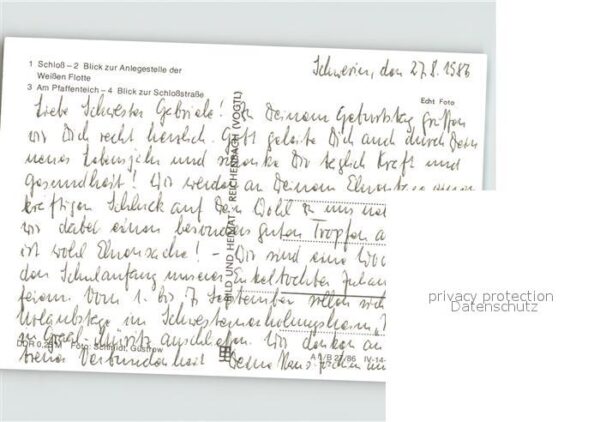 1 Schloß – 2 Blick zur Anlegestelle der
Weißen Flotte
3 Am Pfaffenteich – 4 Blick zur Schloßstraße
Schwerin, den 27.8.1986
Echt Foto
Liebe Schwester Gabriele! Zu Deinem Geburtstag grüßen
wir Dich recht herzlich. Gott geleite Dich auch durch Dein
neues Lebensjahr und schenke Dir täglich Kraft und
Gesundheit! Wir werden an Deinem Ehrentage einen
kräftigen Schluck auf Dein Wohl
wir dabei einen besonders guten Tropfen
ist wohl Ehrensache! – Wir sind eine
den Schulanfang unserer Enkeltochter
feiern. Vom 1. bis 7. September sollen sich
Urlaubstage im Schwesternerholungsheim
in Graal-Müritz anschließen. Wir denken an
treuer Verbundenheit Deine Hans-Jochen
BILD UND HEIMAT REICHENBACH (VOGTL)
DDR 0,20 M Foto: Schmidt, Güstrow
A 1/B 27/86 IV-14-
privacy protection
Datenschutz